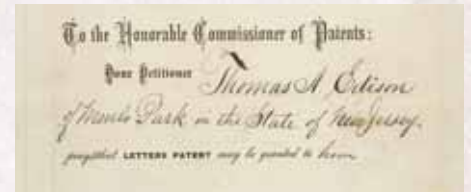 To the Honorable Commissioner of Patents:
Your Petitioner Thomas A Edison
of Menlo Park in the State of New Jersey.
prays that LETTERS PATENT may be granted to him